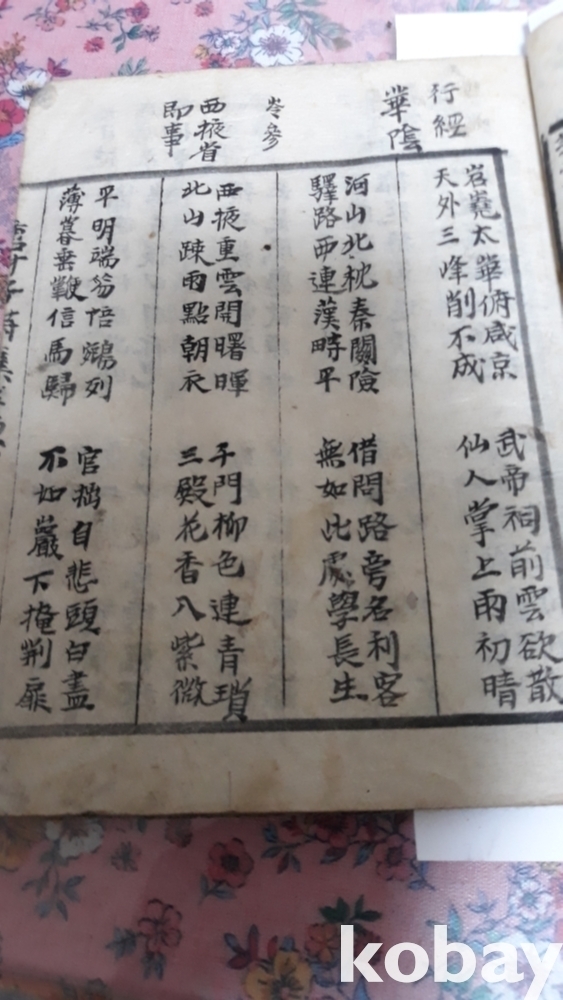 行經
華陰
岧嶤太華俯咸京
天外三峰削不成
武帝祠前雲欲散
仙人掌上雨初晴
河山北枕秦關險
驛路西連漢畤平
借問路旁名利客
無如此處學長生
岑參
西掖省
即事
西掖重雲開曙暉
北山疎雨點朝衣
千門柳色連青瑣
三殿花香入紫微
平明端笏陪鵷列
薄暮垂鞭信馬歸
官拙自悲頭白盡
不如巖下掩荊扉
kobay